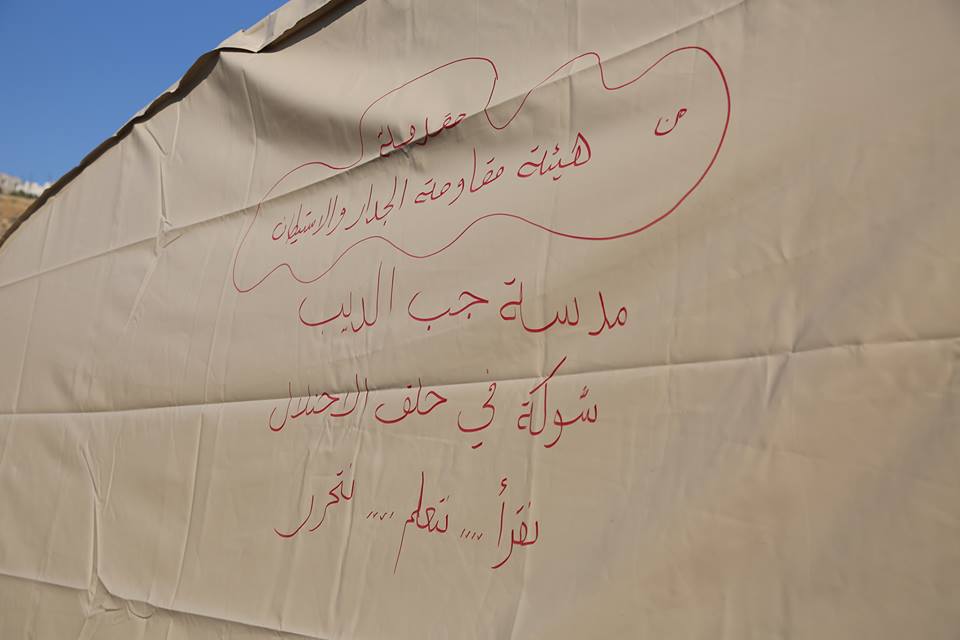 مقدمة
من
هيئة مقاومة الجدار والاستيطان
مدسة جب الديب
شوكة في حلف الاحتلال
نقرأ .... نتعلم .... نتحرر